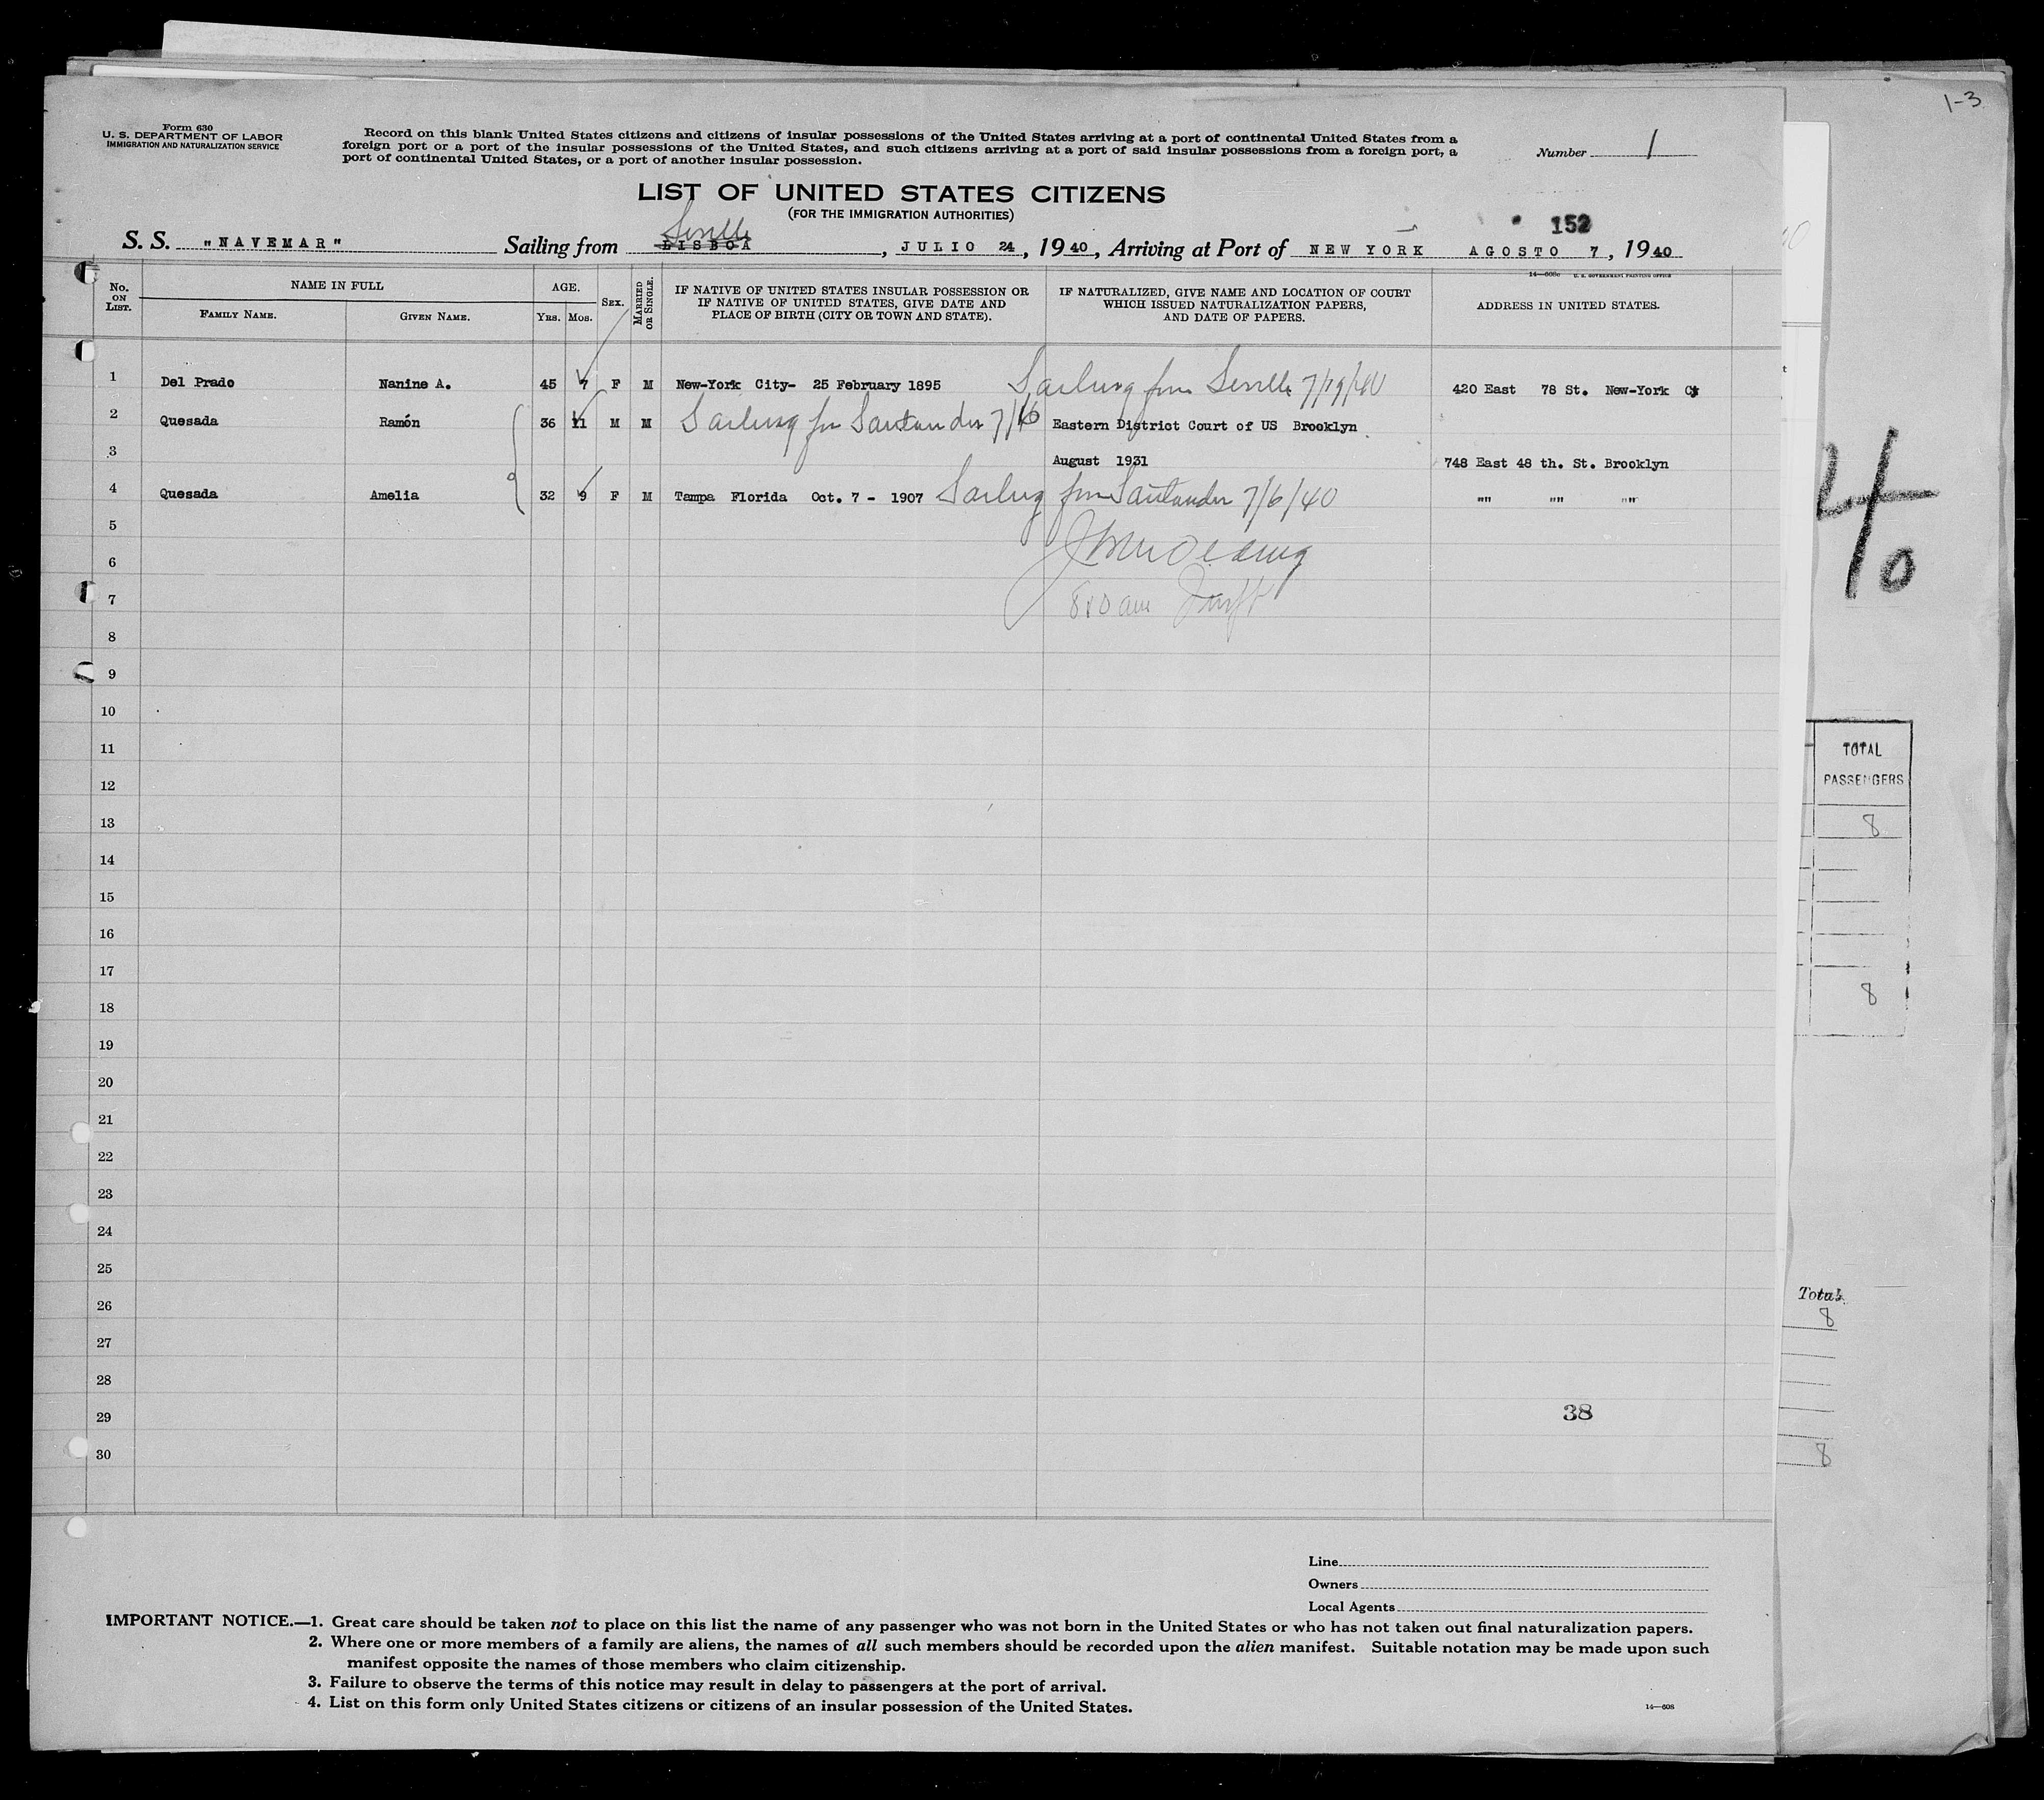 1-3
Form 630
U. S. DEPARTMENT OF LABOR
IMMIGRATION AND NATURALIZATION SERVICE
Record on this blank United States citizens and citizens of insular possessions of the United States arriving at a port of continental United States from a
foreign port or a port of the insular possessions of the United States, and such citizens arriving at a port of said insular possessions from a foreign port, a
port of continental United States, or a port of another insular possession.
Number 1
LIST OF UNITED STATES CITIZENS
(FOR THE IMMIGRATION AUTHORITIES)
152
Seville
S. S. "NAVEMAR" Sailing from LISBOA, JULIO 24, 1940, Arriving at Port of NEW YORK AGOSTO 7, 1940
14—608c U. S. GOVERNMENT PRINTING OFFICE
No. ON LIST.
NAME IN FULL
FAMILY NAME.
GIVEN NAME.
AGE.
YRS.
MOS.
SEX.
MARRIED OR SINGLE.
IF NATIVE OF UNITED STATES INSULAR POSSESSION OR
IF NATIVE OF UNITED STATES, GIVE DATE AND
PLACE OF BIRTH (CITY OR TOWN AND STATE).
IF NATURALIZED, GIVE NAME AND LOCATION OF COURT
WHICH ISSUED NATURALIZATION PAPERS,
AND DATE OF PAPERS.
ADDRESS IN UNITED STATES.
1 Del Prado Nanine A. 45 7 F M New-York City- 25 February 1895 Sailing from Seville 7/19/40 420 East 78 St. New-York
2 Quesada Ramón 36 11 M M Sailing fr Santander 7/6 Eastern District Court of US Brooklyn
3 August 1931 748 East 48 th. St. Brooklyn
4 Quesada Amelia 32 9 F M Tampa Florida Oct. 7 - 1907 Sailing from Santander 7/6/40 "" "" ""
5
6
7
8
9
10
11
12
13
14
15
16
17
18
19
20
21
22
23
24
25
26
27
28
29 38
30
Line
Owners
Local Agents
IMPORTANT NOTICE.—1. Great care should be taken not to place on this list the name of any passenger who was not born in the United States or who has not taken out final naturalization papers.
2. Where one or more members of a family are aliens, the names of all such members should be recorded upon the alien manifest. Suitable notation may be made upon such
manifest opposite the names of those members who claim citizenship.
3. Failure to observe the terms of this notice may result in delay to passengers at the port of arrival.
4. List on this form only United States citizens or citizens of an insular possession of the United States.
14—608
TOTAL
PASSENGERS
8
8
Total
8
8